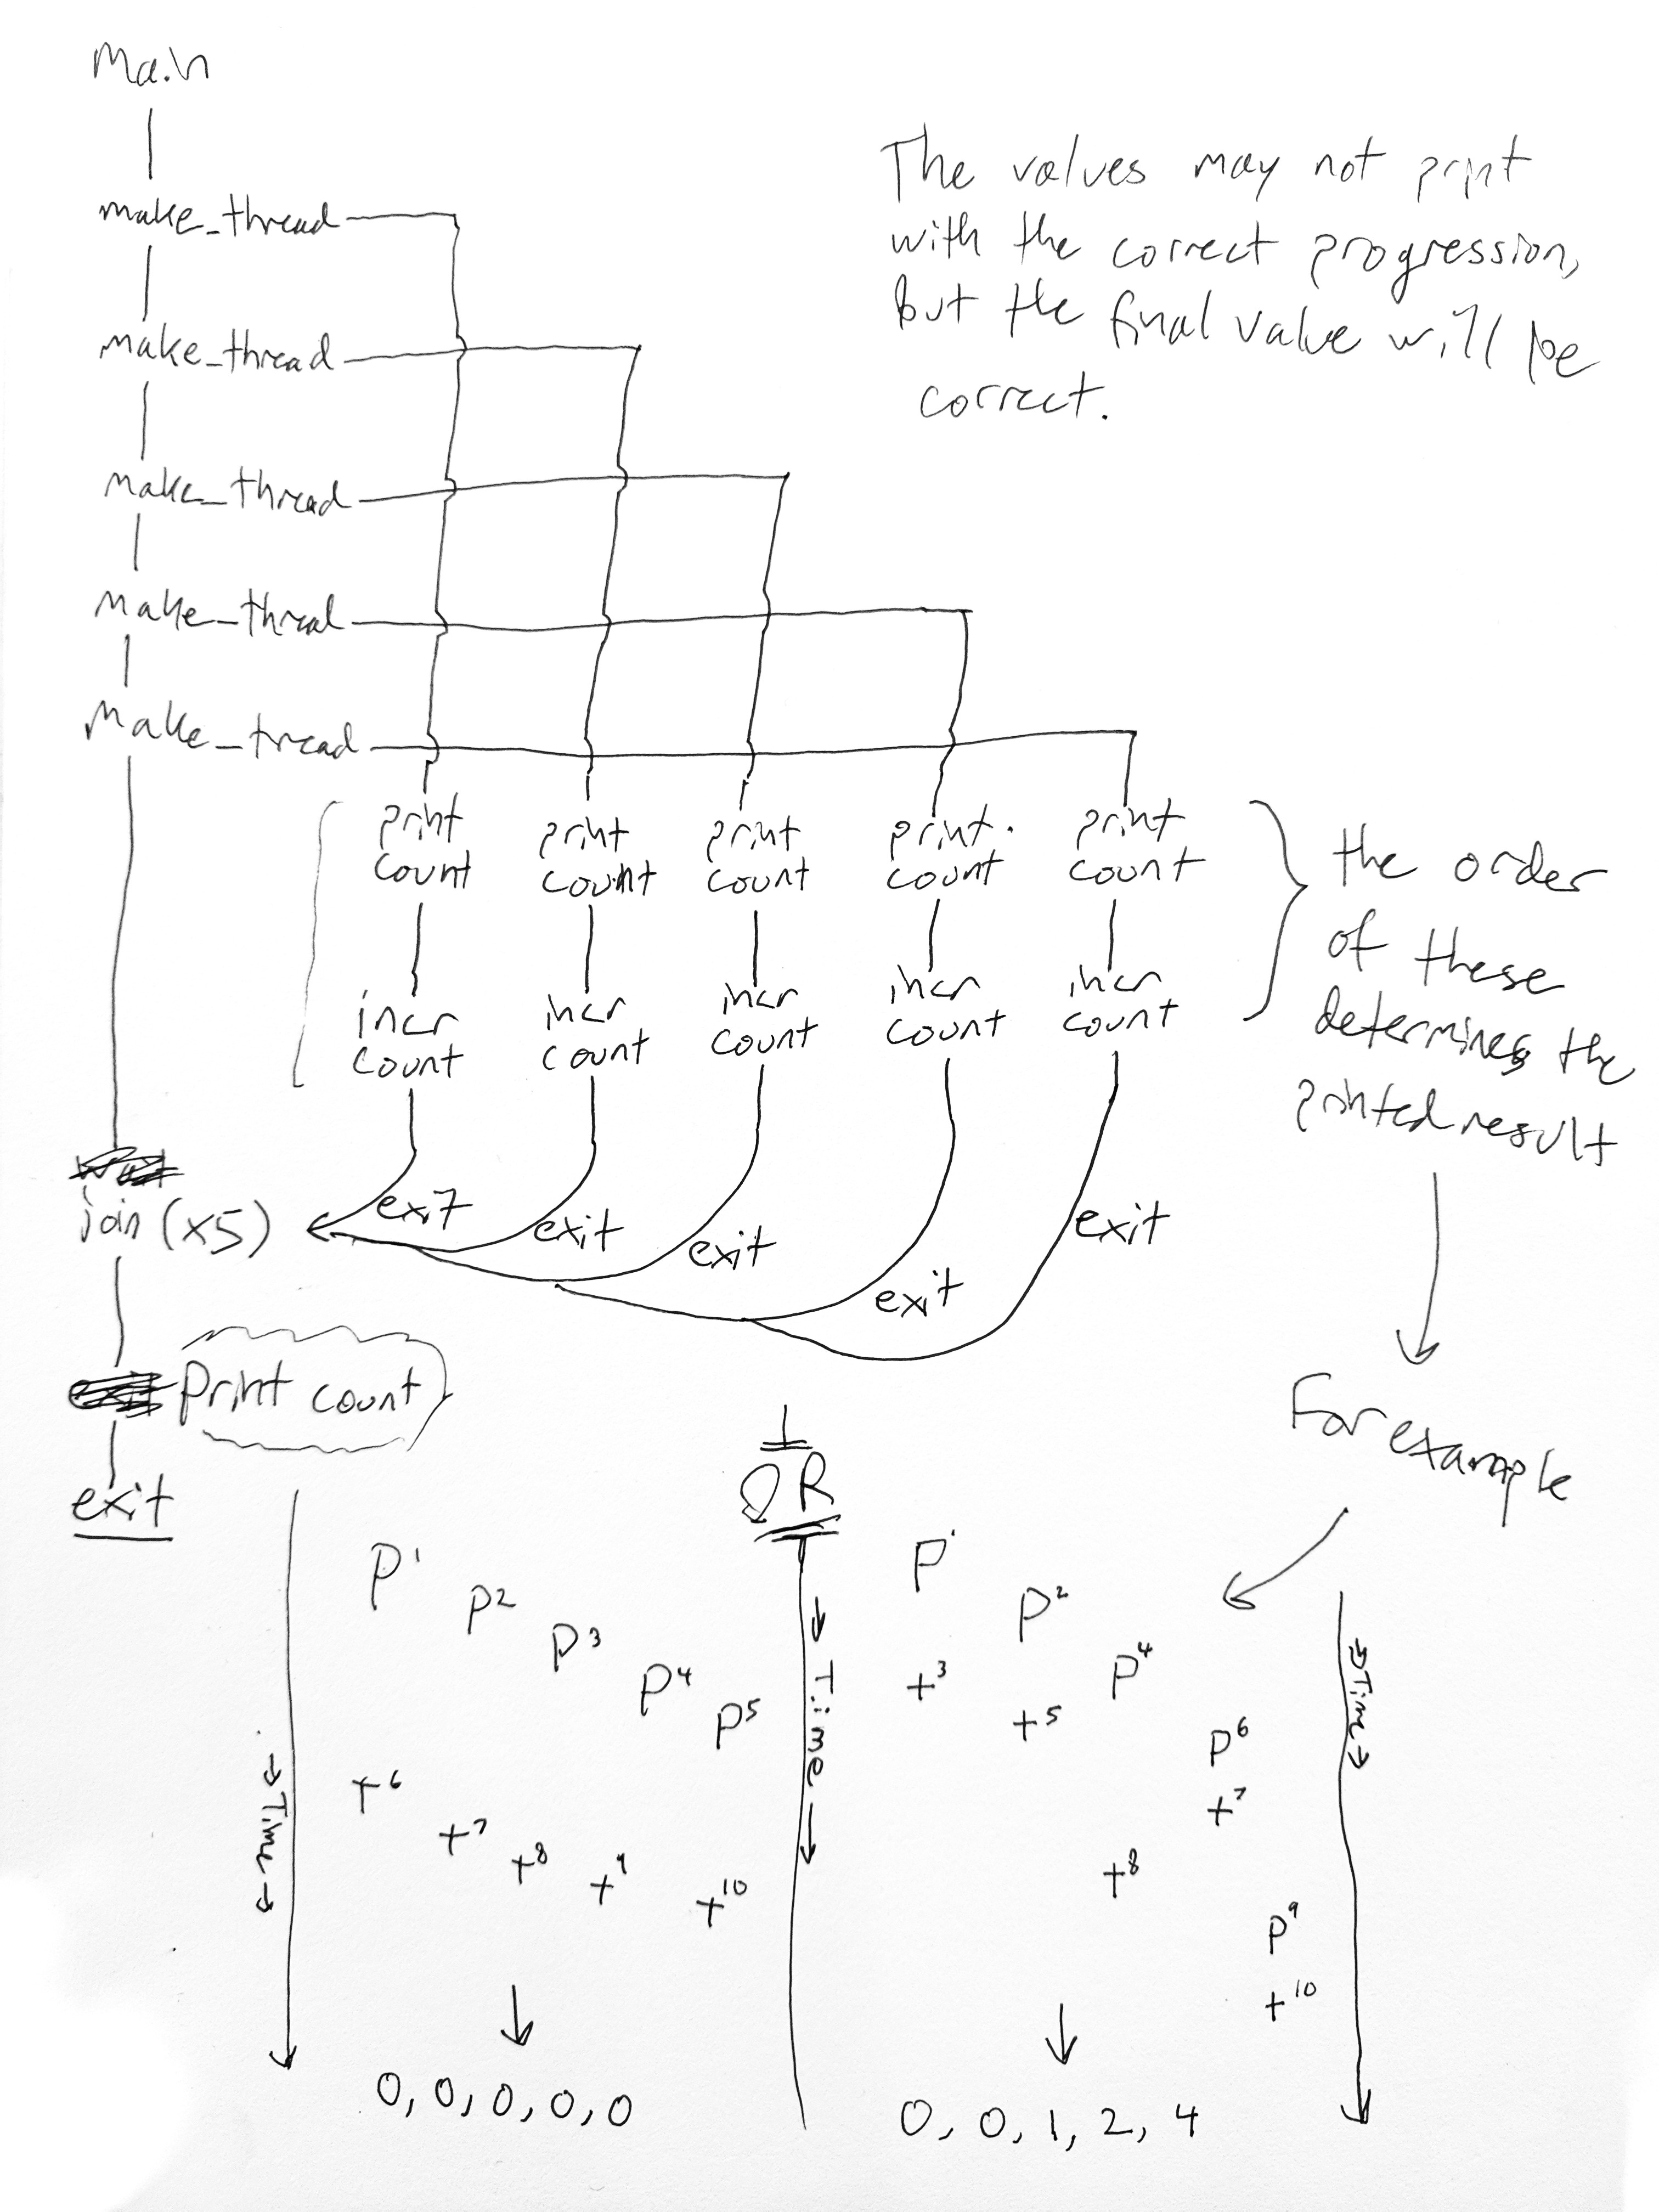 Main
make_thread
make_thread
make_thread
Make_thread
Make_tread
The values may not print
with the correct progression,
but the final value will be
correct.
print count
print count
print count
print. count
print count
incr count
incr count
incr count
incr count
incr count
the order
of these
determines the
printed result
join (x5)
exit
exit
exit
exit
exit
Print count
exit
For example
OR
P1
P2
P3
P4
P5
+6
+7
+8
+9
+10
→Time→
0, 0, 0, 0, 0
→Time→
P1
P2
+3
P4
+5
P6
+7
+8
P9
+10
→Time→
0, 0, 1, 2, 4